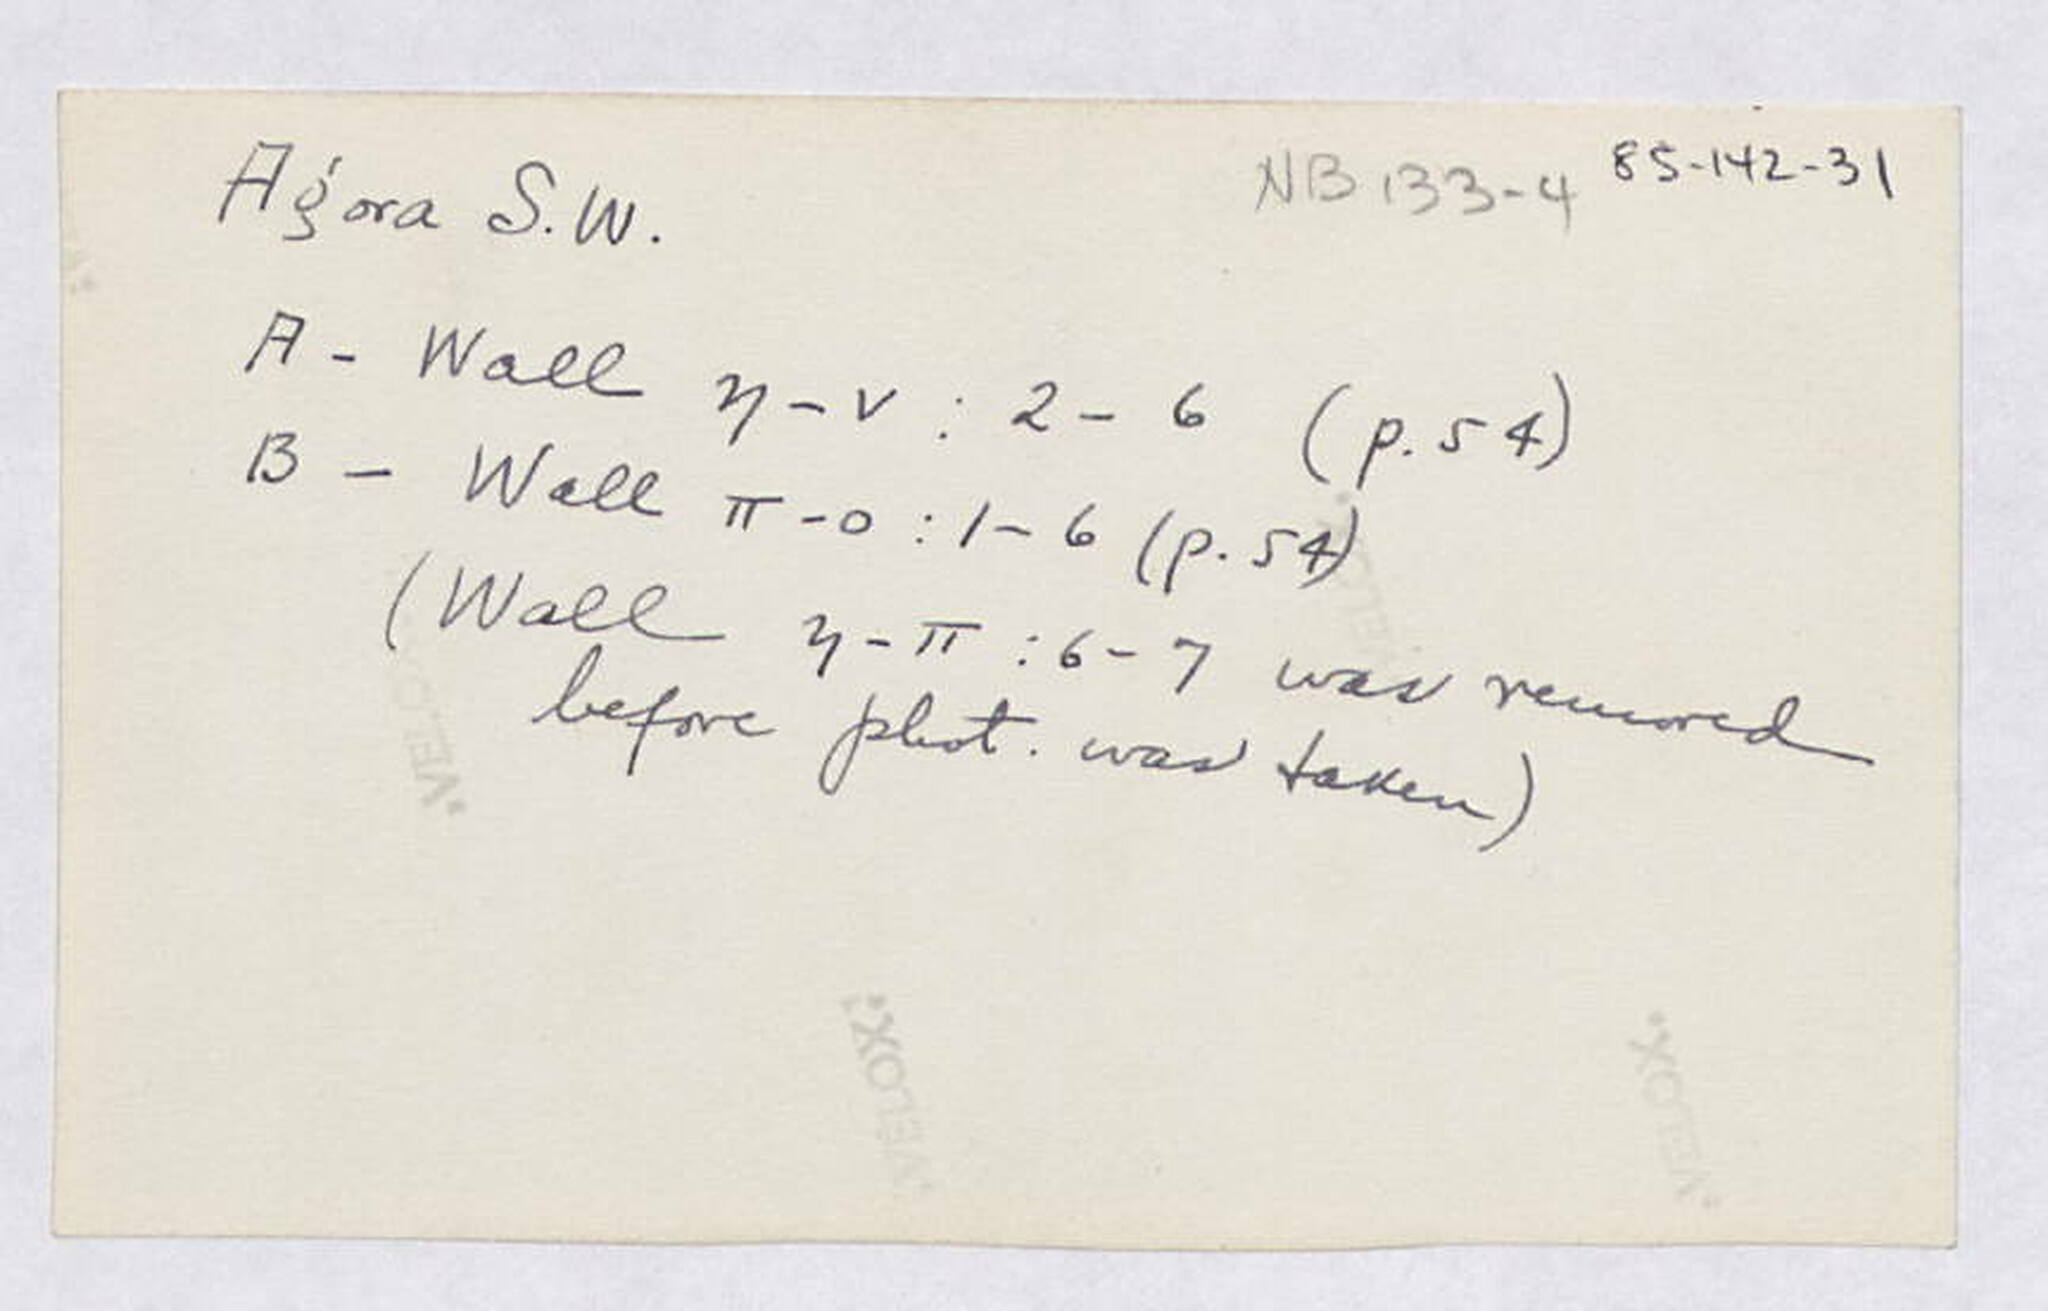 Agora S.W.
NB 133-4 85-142-31
A - Wall η-ν : 2-6 (p. 54)
B - Wall π-ο : 1-6 (p. 54)
(Wall η-π : 6-7 was removed
before phot. was taken)
VELOX
VELOX
VELOX
VELOX